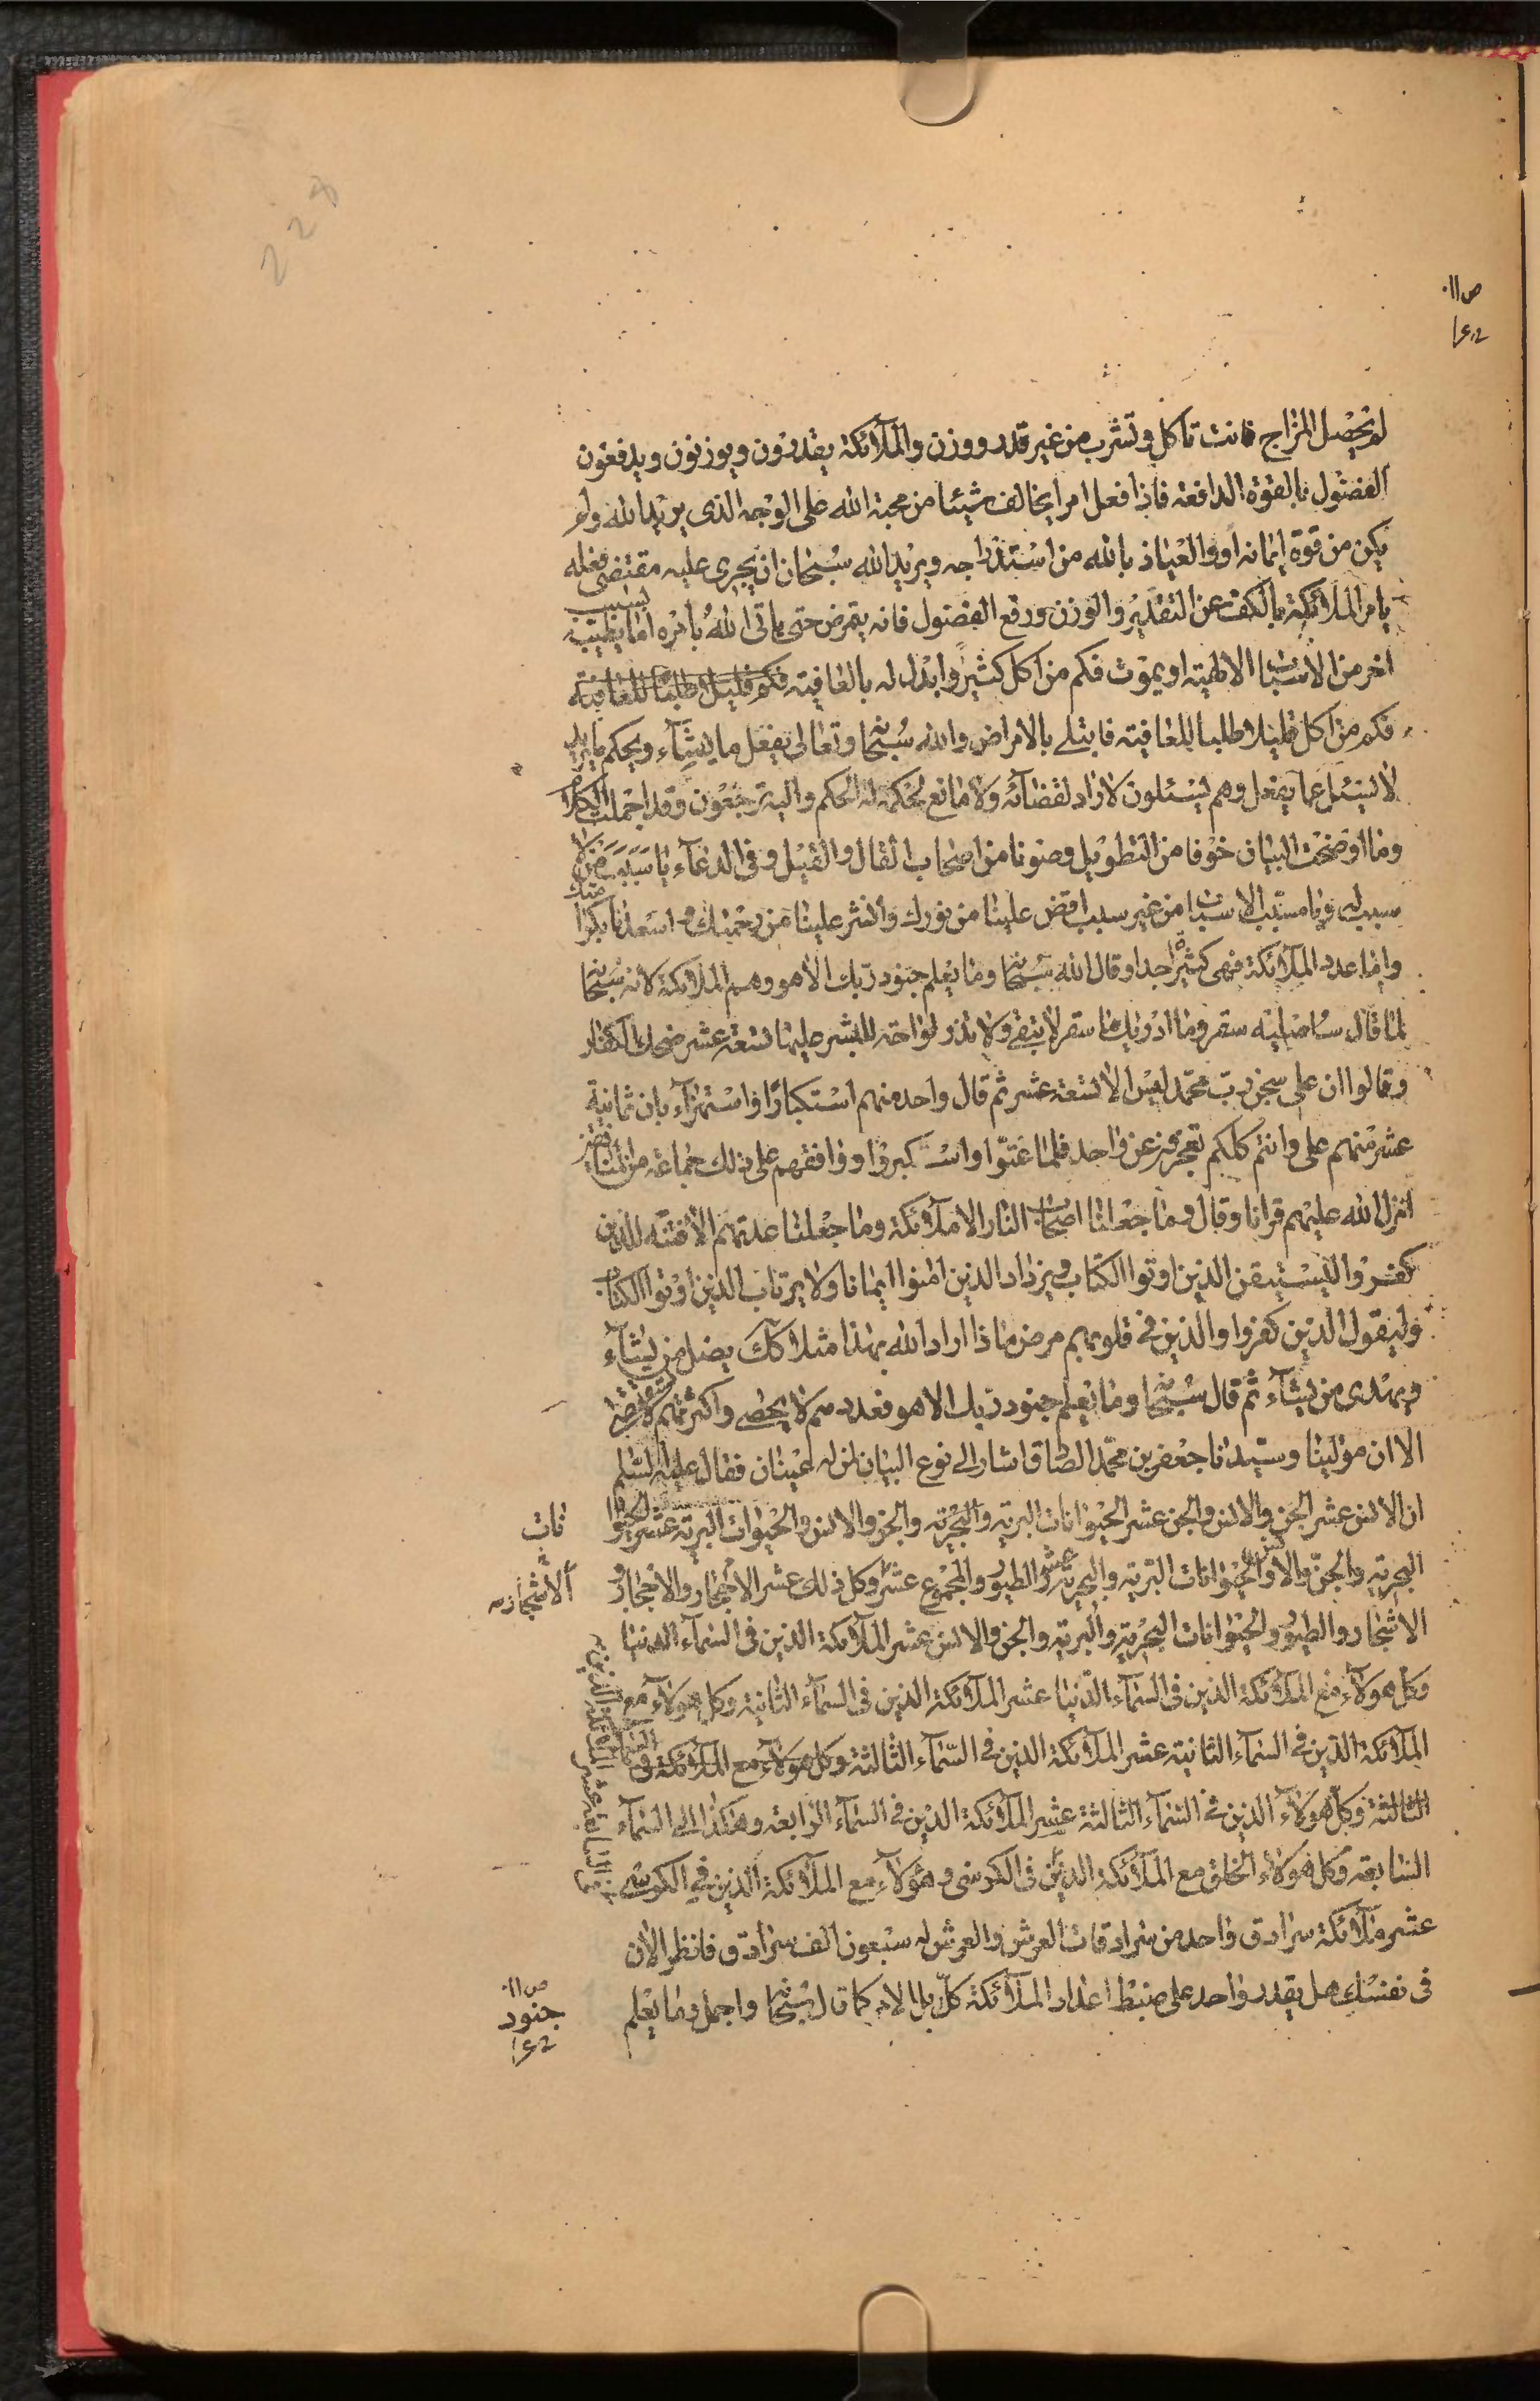 ص ١١٠
١٤٢
لم يحصل المزاج فانت تاكل وتشرب من غير قدر ووزن والملآئكة يقدرون ويوزنون ويدفعون
الفضول بالقوة الدافعة فاذا فعل امرا يخالف شيئا من محبة الله على الوجه الذى يريد الله ولم
يكن من قوة ايمانه او والعياذ بالله من استدراجه ويريد الله سبحان ان يجرى عليه مقتضى فعله
يامر الملائكة بالكف عن التقدير والوزن ورفع الفضول فانه يتمرض حتى ياتى الله بامره اما بطبيب لسبب
اخر من الاسباب الالهية او يموت فكم من اكل كثيرا وابدل له بالعافية فكم قليلا طلبا للعافية
فكم من اكل قليلا طلبا للعافية فابتلى بالامراض والله سبحانه وتعالى يفعل ما يشآء ويحكم ما يريد
لا يسئل عما يفعل وهم يسئلون لا راد لقضائه ولا مانع لحكمه له الحكم واليه ترجعون وقد اجملت الكلام
وما اوضحت البيان خوفا من التطويل وصونا من اصحاب القال والقيل وفى الدعآء يا سبب من لا
سبب له ويا مسبب الاسباب من غير سبب افض علينا من نورك وانشر علينا من رحمتك واسعدنا بكرامتك
واما عدد الملآئكة فهى كثيرة جدا وقال الله سبحانه وما يعلم جنود ربك الا هو وهم الملائكة لانه سبحانه
لما قال ساصليه سقر وما ادريك ما سقر لا تبقى ولا تذر لواحة للبشر عليها تسعة عشر ضحك الكفار
وقالوا ان على سجن رب محمد ليس الا تسعة عشر ثم قال واحد منهم استكبارا واستهزآء بان ثمانية
عشر منهم على وانتم كلكم تعجزون عن واحد فلما عتوا واستكبروا ووافقهم على ذلك جماعة من المنافقين
انزل الله عليهم قرانا وقال وما جعلنا اصحاب النار الا ملآئكة وما جعلنا عدتهم الا فتنة للذين
كفروا ليستيقن الذين اوتوا الكتاب ويزداد الذين امنوا ايمانا ولا يرتاب الذين اوتوا الكتاب
وليقول الذين كفروا والذين فى قلوبهم مرض ماذا اراد الله بهذا مثلا كك يضل من يشآء
ويهدى من يشآء ثم قال سبحانه وما يعلم جنود ربك الا هو فعددهم لا يحصى واكثرهم لا
الا ان مولينا وسيدنا جعفر بن محمد الصادق اشار الى نوع البيان لمن له عينان فقال عليه السلم
ان الانس عشر الجن والانس والجن عشر الحيوانات البرية والبحرية والجن والانس والحيوات البرية عشر الحيوانات
البحرية والجن والانس والحيوانات البرية والبحرية عشر الطيور والمجموع عشر وكل ذلك عشر الاحجار والاحجار و
الاشجار
الاشجار والطيور والحيوانات البحرية والبرية والجن والانس عشر الملآئكة الذين فى السمآء الدنيا
وكل هولآء مع الملآئكة الذين فى السمآء الدنيا عشر الملآئكة الذين فى السمآء الثانية وكل هولآء مع
الملآئكة الذين فى السمآء الثانية عشر الملآئكة الذين فى السمآء الثالثة وكل هولآء مع الملآئكة فى السمآء
الثالثة وكل هولآء الذين فى السمآء الثالثة عشر الملآئكة الذين فى السمآء الرابعة وهكذا الى السمآء
السابعة وكل هولآء الخلق مع الملآئكة الذين فى الكرسى وهولآء مع الملآئكة الذين فى الكرسى
عشر ملآئكة سرادق واحد من سرادقات العرش والعرش له سبعون الف سرادق فانظر الان
فى نفسك هل يقدر واحد على ضبط اعداد الملآئكة كلا بل الامر كما قال سبحانه واجمل وما يعلم
ص ١١٠
جنود
١٤٢